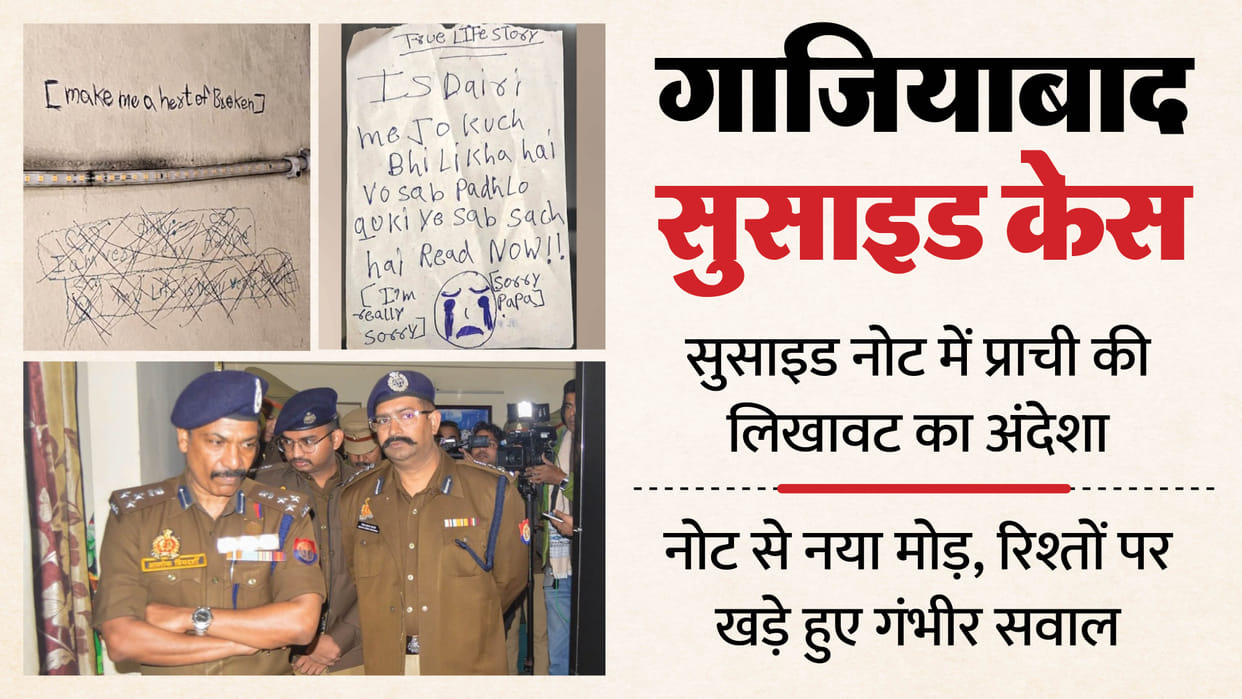 [make me a hert of Broken]
I am very
Life is
True LIFE STORY
IS Dairi
me Jo kuch
Bhi Likha hai
Vo sab Padhlo
quki ye sab sach
hai Read NOW!!
[I'm
really
sorry]
[sorry
Papa]
गाजियाबाद
सुसाइड केस
सुसाइड नोट में प्राची की
लिखावट का अंदेशा
नोट से नया मोड़, रिश्तों पर
खड़े हुए गंभीर सवाल